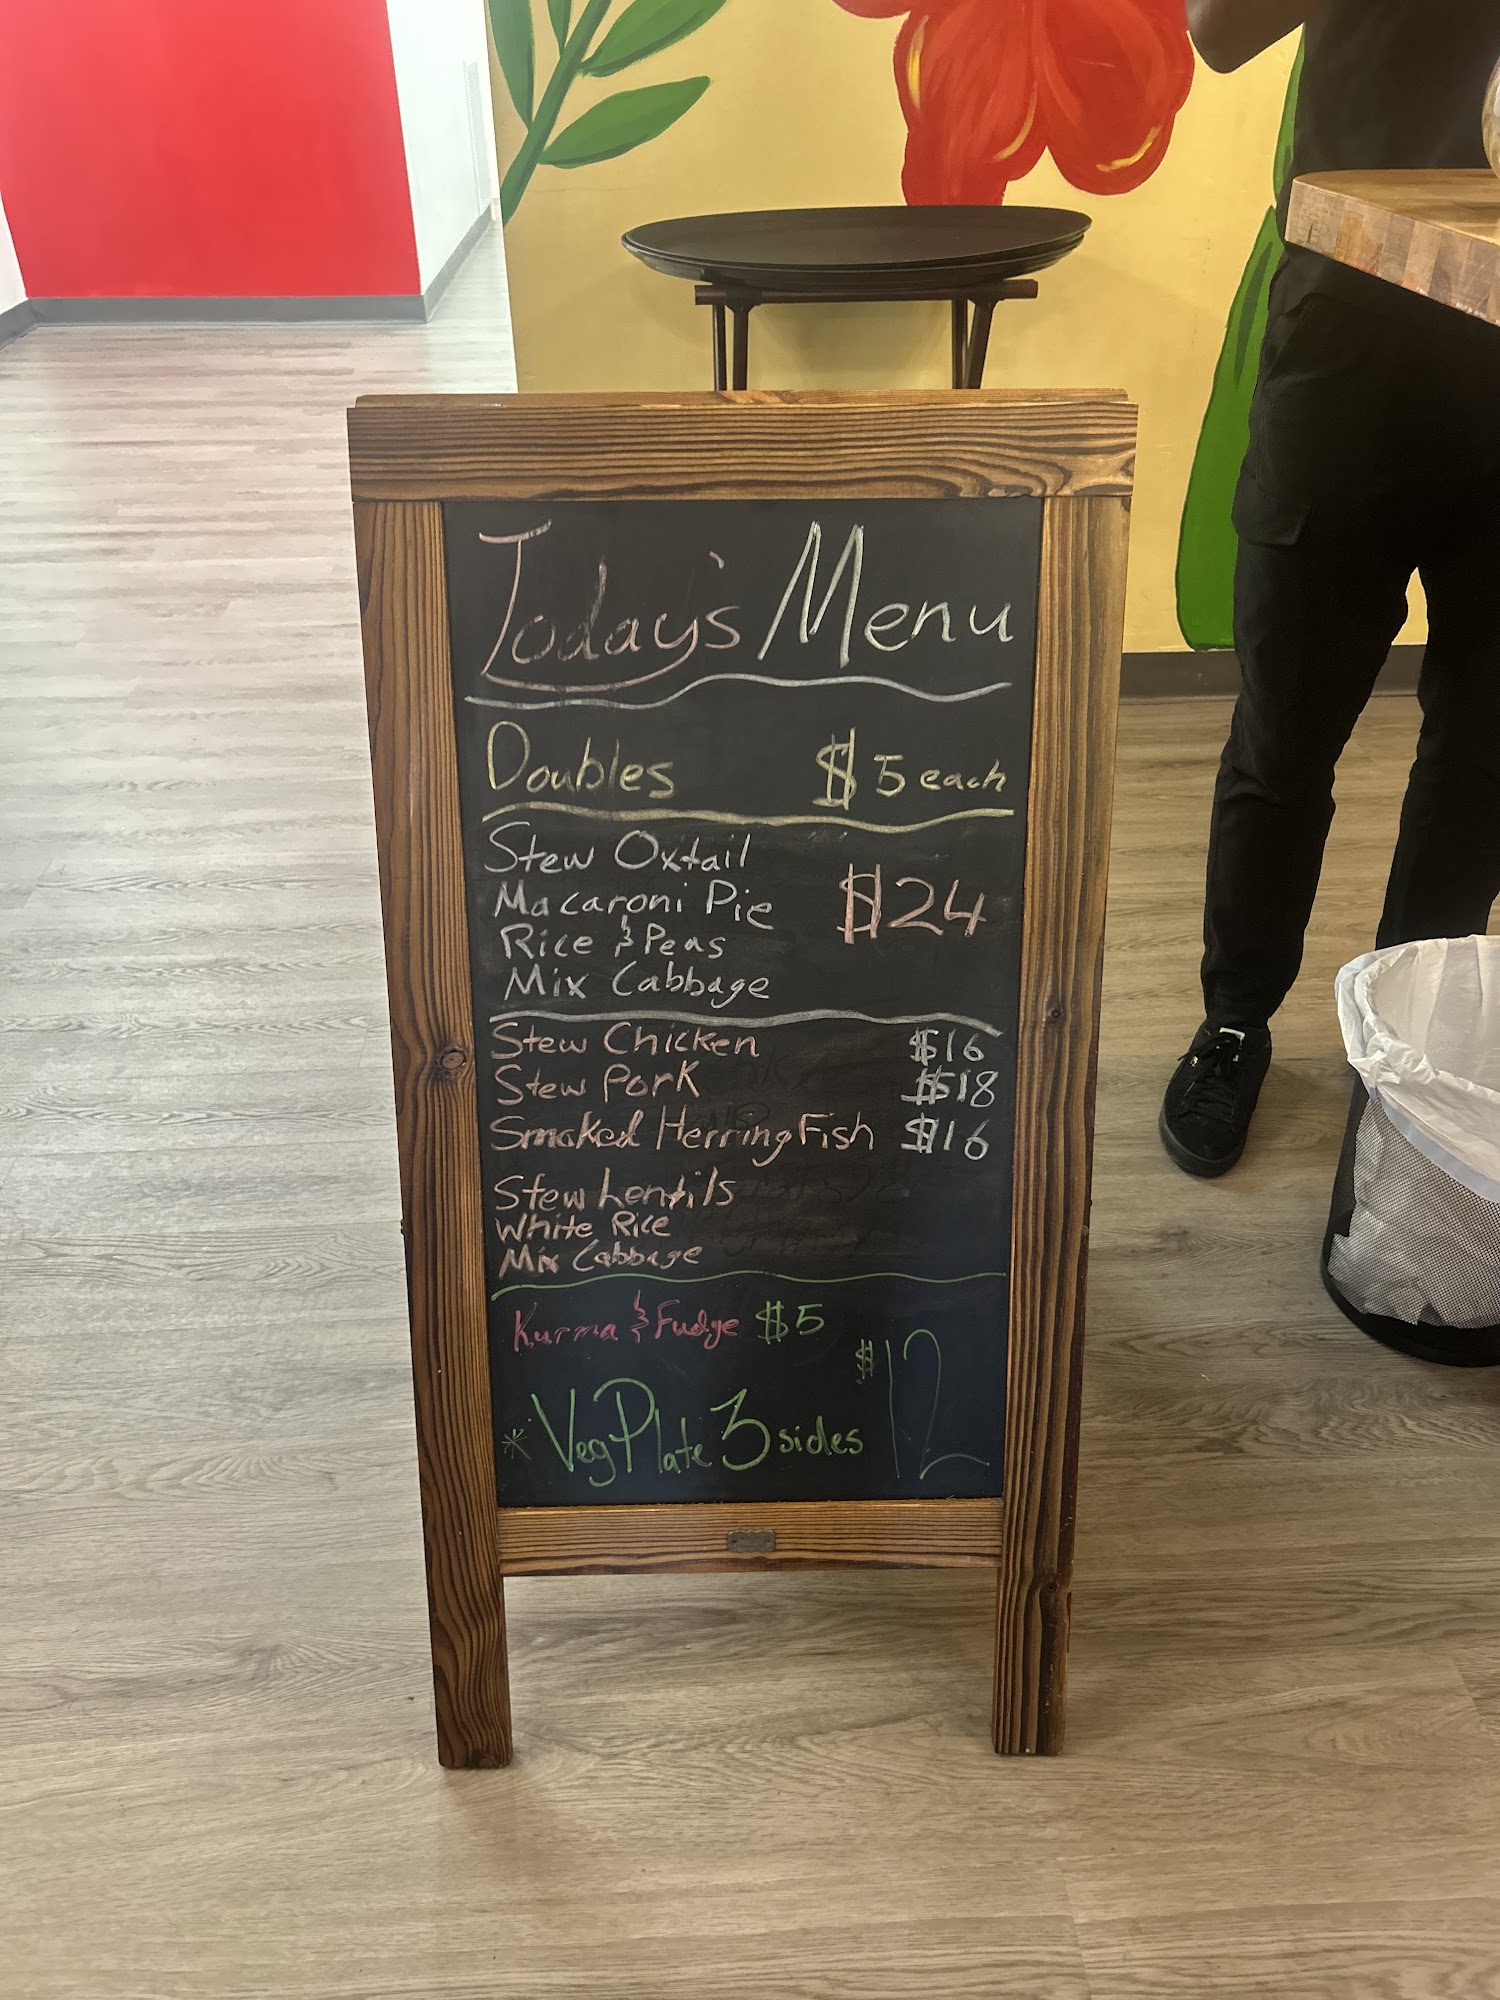 Today's Menu
Doubles $5 each
Stew Oxtail
Macaroni Pie $24
Rice & Peas
Mix Cabbage
Stew Chicken $16
Stew Pork $18
Smoked Herring Fish $16
Stew Lentils
White Rice
Mix Cabbage
Kurma & Fudge $5
* Veg Plate 3 sides $12